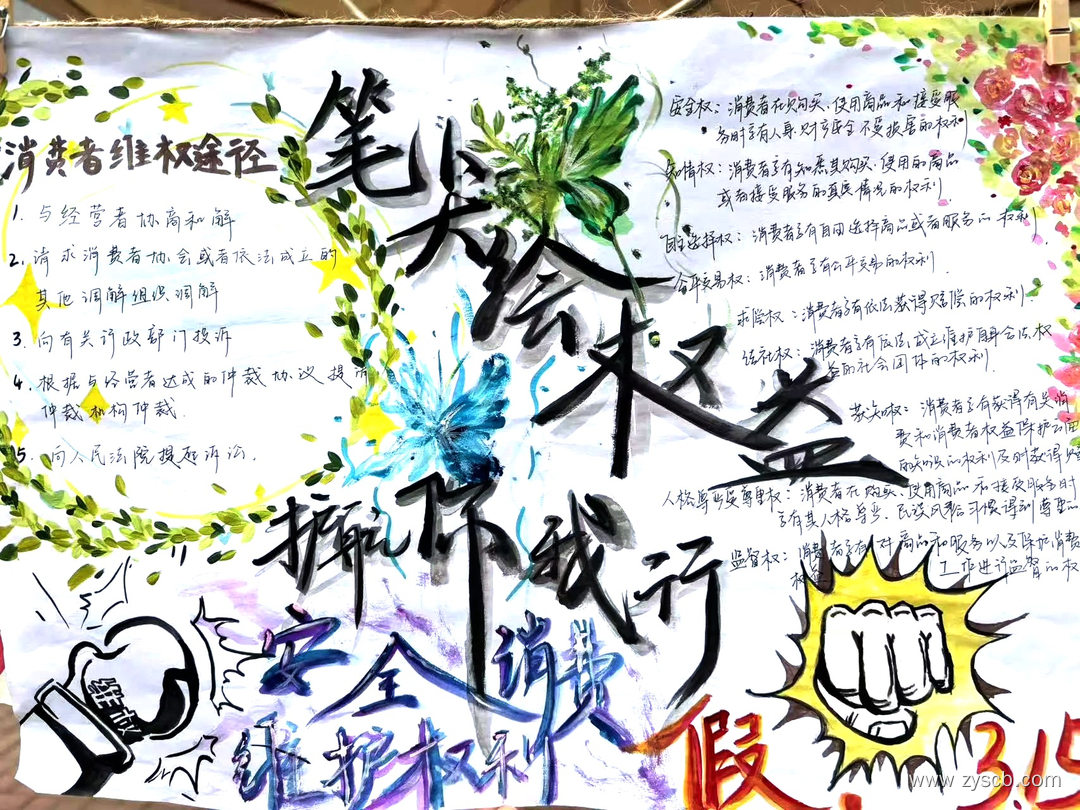 消费者维权途径
1. 与经营者协商和解
2. 请求消费者协会或者依法成立的
其他调解组织调解
3. 向有关行政部门投诉
4. 根据与经营者达成的仲裁协议提请
仲裁机构仲裁.
5. 向人民法院提起诉讼.
笔尖绘权益
护航你我行
安全消费
维护权利
维权
安全权：消费者在购买、使用商品和接受服
务时享有人身财产安全不受损害的权利
知情权：消费者享有知悉其购买、使用的商品
或者接受服务的真实情况的权利
自主选择权：消费者享有自由选择商品或者服务的权利
公平交易权：消费者享有公平交易的权利.
求偿权：消费者享有依法获得赔偿的权利.
结社权：消费者享有依法成立维护自身合法权
益的社会团体的权利.
获知权：消费者享有获得有关消
费和消费者权益保护方面
的知识的权利
人格尊严受尊重权：消费者在购买、使用商品和接受服务时
享有其人格尊严、民族风俗习惯得到尊重的
监督权：消费者享有对商品和服务以及保护消费
工作进行监督的权
假
315
www.zyscb.com